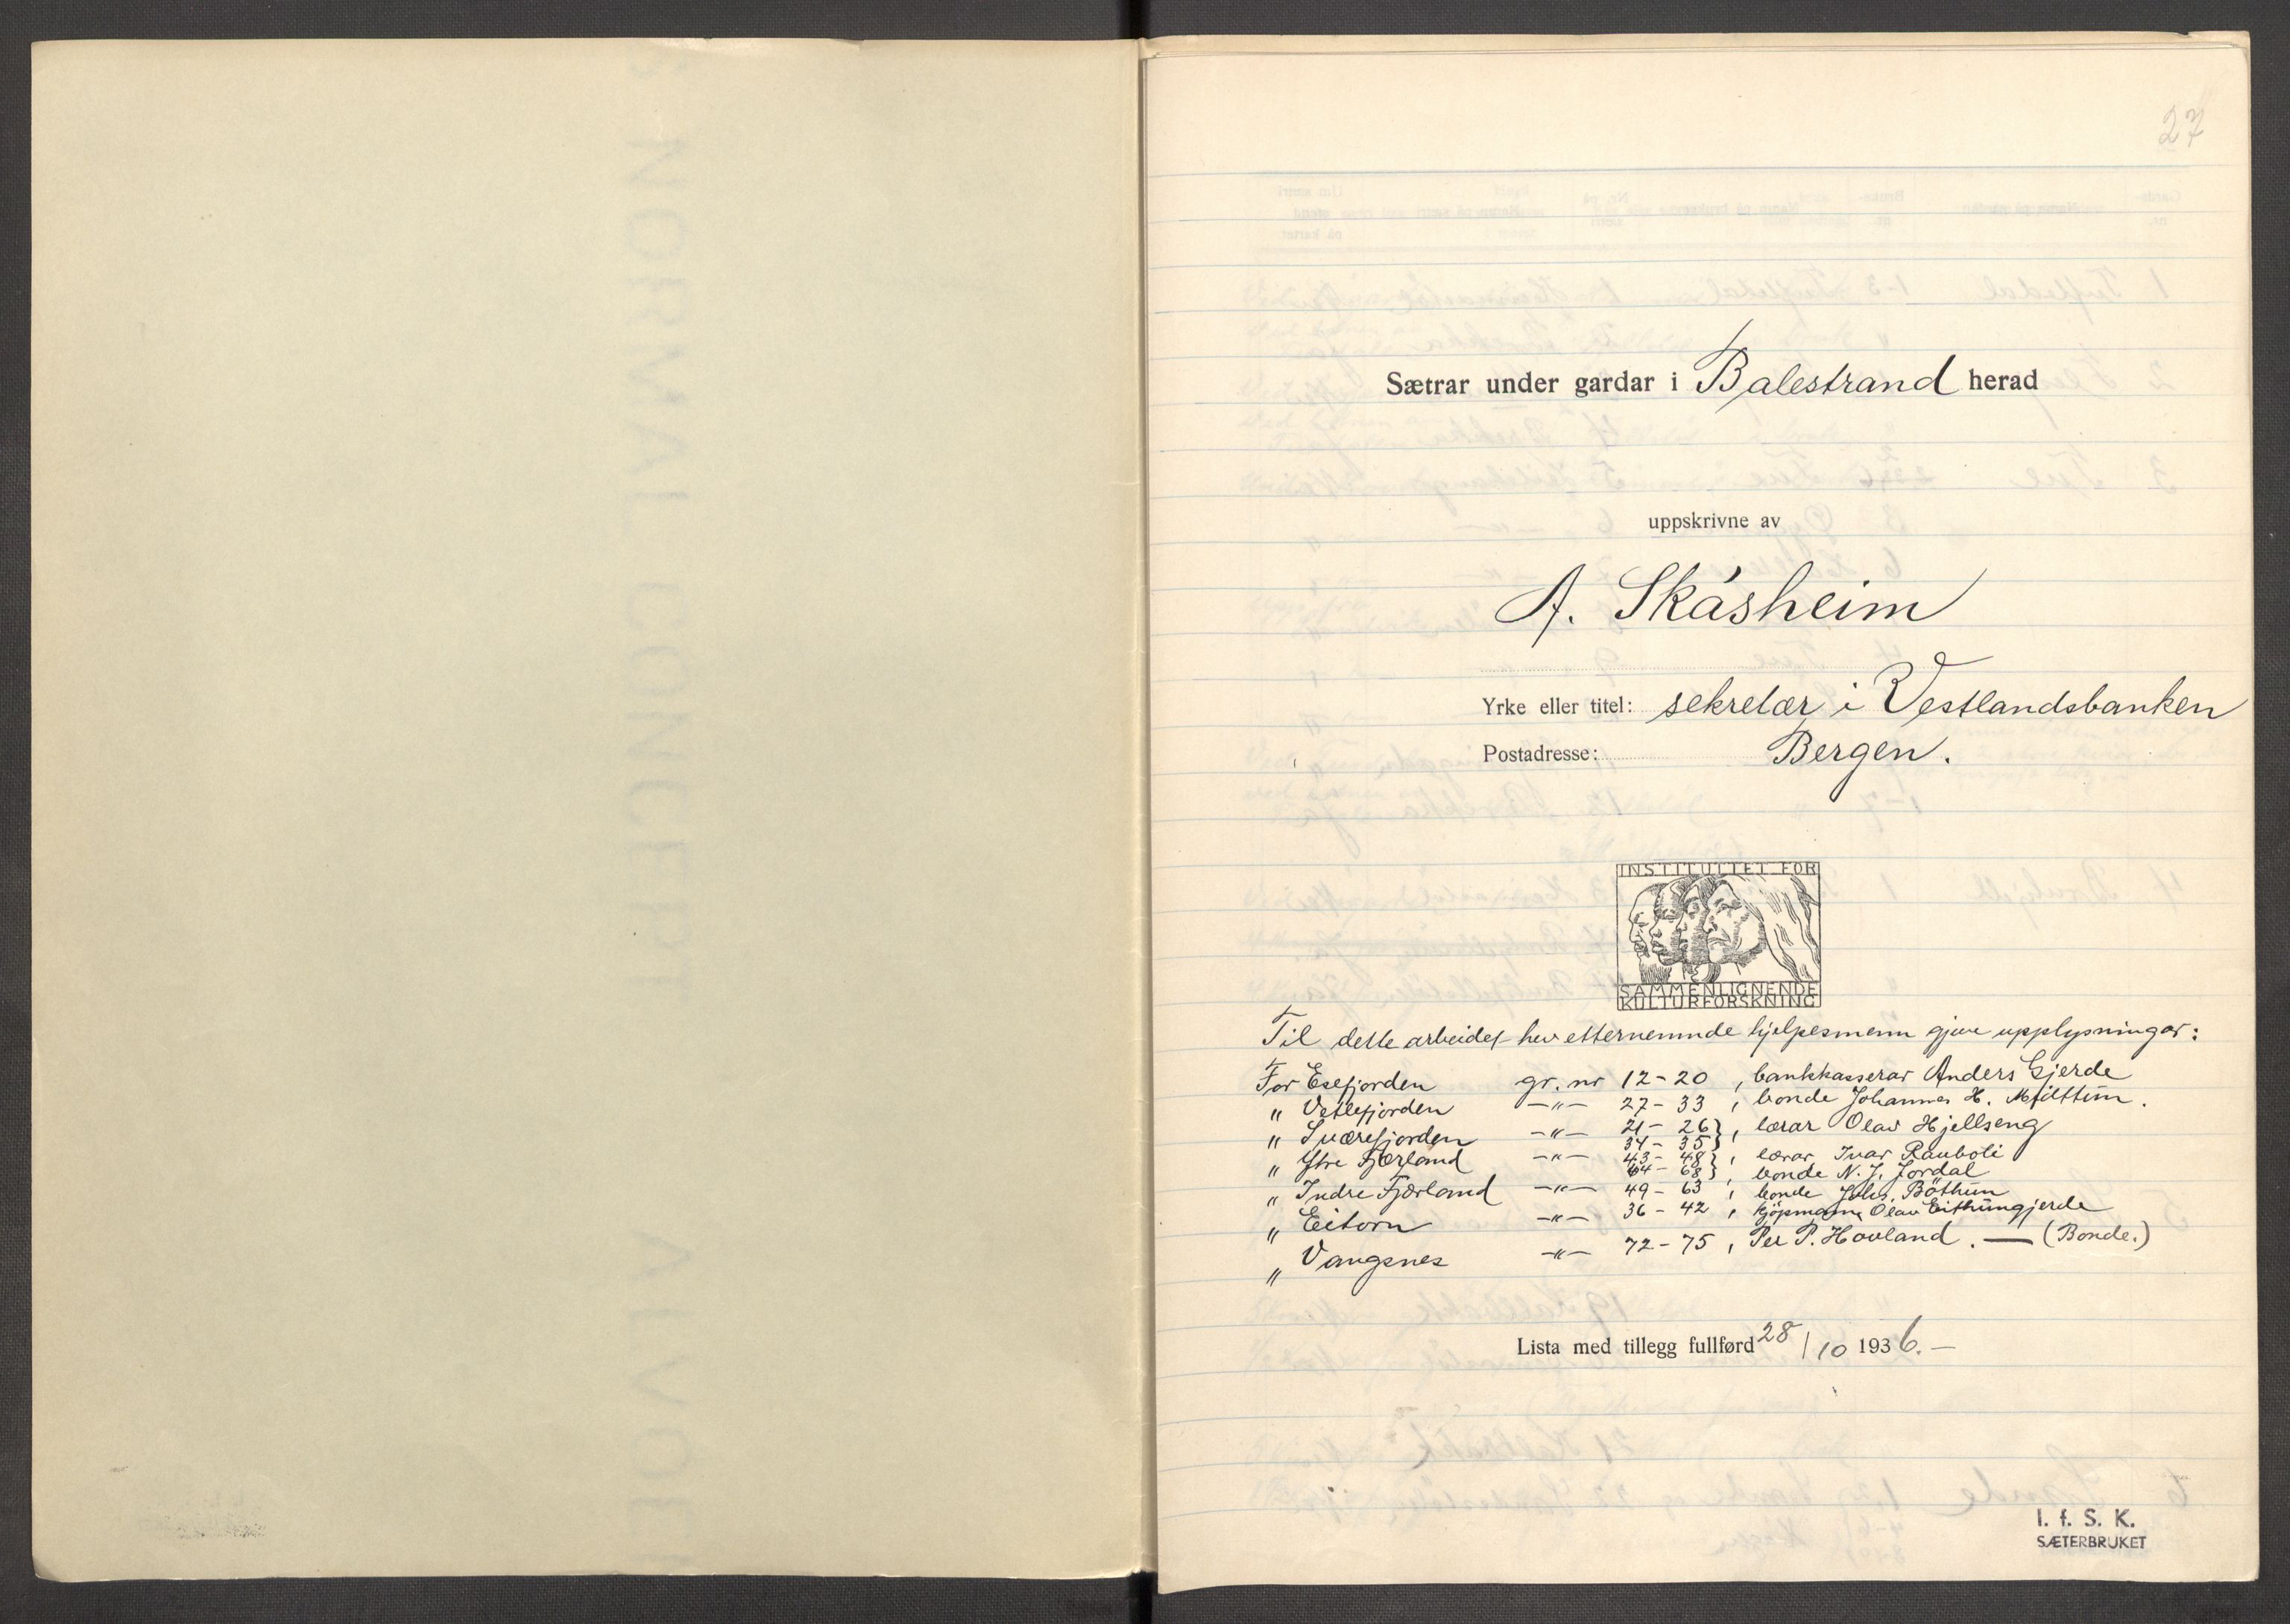 27
Sætrar under gardar i Balestrand herad
uppskrivne av
A. Skåsheim
Yrke eller titel: sekretær i Vestlandsbanken
Postadresse: Bergen.
INSTITUTTET FOR
SAMMENLIGNENDE
KULTURFORSKNING
Til dette arbeidet hev etternemnde hjelpesmenn gjeve upplysningar:
For Esefjorden gr. nr 12-20, bankkasserar Anders Gjerde
" Vetlefjorden —"— 27-33, bonde Johannes H. Mjelttun.
" Sværefjorden —"— 21-26 34-35}, lærar Olav Hjellseng
" Ytre Fjærland —"— 43-48 64-68}, lærar Ivar Rauboti, bonde N. J. Jordal
" Indre Fjærland —"— 49-63, bonde Johs. Bøthun
" Eitorn —"— 36-42, kjöpmann Olav Eithungjerde
" Vangsnes —"— 72-75, Per P. Hovland. — (Bonde.)
Lista med tillegg fullførd 28/10 1936.-
I. f. S. K.
SÆTERBRUKET